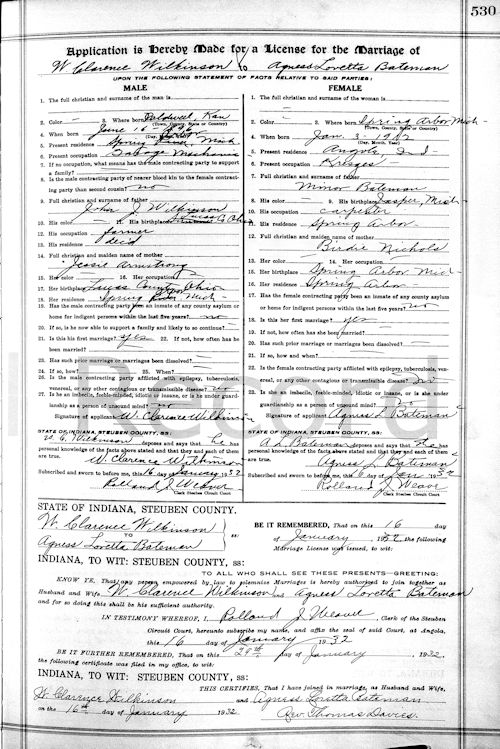 530
Application is Hereby Made for a License for the Marriage of
W Clarence Wilkinson to Agness Loretta Bateman
UPON THE FOLLOWING STATEMENT OF FACTS RELATIVE TO SAID PARTIES:
MALE
1. The full christian and surname of the man is
2. Color 3. Where born Caldwell, Kan
(Town, County, State or Country)
4. When born June 16 - 1896
(Day, Month, Year)
5. Present residence Spring Arbor, Mich
6. Present occupation Mechanic
7. If no occupation, what means has the male contracting party to support
a family?
8. Is the male contracting party of nearer blood kin to the female contract-
ing party than second cousin? no
9. Full christian and surname of father
John J Wilkinson
10. His color 11. His birthplace Lucas Co Ohio
12. His occupation farmer
13. His residence dec'd
14. Full christian and maiden name of mother
Jessie Armstrong
15. Her color 16. Her occupation
17. Her birthplace Lucas County Ohio
18. Her residence Spring Arbor Mich
19. Has the male contracting party been an inmate of any county asylum or
home for indigent persons within the last five years? no
20. If so, is he now able to support a family and likely to so continue?
21. Is this his first marriage? yes 22. If not, how often has he been
married?
23. Has such prior marriage or marriages been dissolved?
24. If so, how? 25. When?
26. Is the male contracting party afflicted with epilepsy, tuberculosis,
venereal, or any other contagious or transmissible disease? no
27. Is he an imbecile, feeble-minded, idiotic or insane, or is he under
guardianship as a person of unsound mind? no
Signature of applicant W. Clarence Wilkinson
STATE OF INDIANA, STEUBEN COUNTY, ss:
W. C. Wilkinson deposes and says that he has
personal knowledge of the facts above stated and that they and each of them
are true.
W. Clarence Wilkinson
Subscribed and sworn to before me, this 16 day January 1932
Rolland J Weaver
Clerk Steuben Circuit Court
FEMALE
1. The full christian and surname of the woman is
2. Color 3. Where born Spring Arbor Mich
(Town, County, State or Country)
4. When born Jan. 3 - 1912
(Day, Month, Year)
5. Present residence Angola, Ind
6. Present occupation Kresges
7. Full christian and surname of father
Minor Bateman
8. His color 9. His birthplace Mich
10. His occupation carpenter
11. His residence Spring Arbor
12. Full christian and maiden name of mother
Birdie Nichols
13. Her color 14. Her occupation
15. Her birthplace Spring Arbor Mich
16. Her residence Spring Arbor
17. Has the female contracting party been an inmate of any county asylum or
home for indigent persons within the last five years? no
18. Is this her first marriage? yes
19. If not, how often has she been married?
20. Has such prior marriage or marriages been dissolved?
21. If so, how and when?
22. Is the female contracting party afflicted with epilepsy, tuberculosis, vene-
real, or any other contagious or transmissible disease? no
23. Is she an imbecile, feeble-minded, idiotic or insane, or is she under
guardianship as a person of unsound mind? no
Signature of applicant Agness L Bateman
STATE OF INDIANA, STEUBEN COUNTY, ss:
A L Bateman deposes and says that she has
personal knowledge of the facts above stated and that they and each of them
are true.
Agness L Bateman
Subscribed and sworn to before me, this 16 day Jan 1932
Rolland J Weaver
Clerk Steuben Circuit Court
STATE OF INDIANA, STEUBEN COUNTY:
W. Clarence Wilkinson
TO
Agness Loretta Bateman
ss:
BE IT REMEMBERED, That on this 16 day
of January, 1932 the following
Marriage License was issued, to wit:
INDIANA, TO WIT: STEUBEN COUNTY, ss:
TO ALL WHO SHALL SEE THESE PRESENTS—GREETING:
KNOW YE, That any person empowered by law to solemnize Marriages is hereby authorized to join together as
Husband and Wife, W Clarence Wilkinson and Agness Loretta Bateman
and for so doing this shall be his sufficient authority.
IN TESTIMONY WHEREOF, I Rolland J Weaver, Clerk of the Steuben
Circuit Court, hereunto subscribe my name, and affix the seal of said Court, at Angola,
this 16 day of January 1932
BE IT FURTHER REMEMBERED, That on this 28th day of January 1932,
the following certificate was filed in my office, to wit:
INDIANA, TO WIT: STEUBEN COUNTY, ss:
THIS CERTIFIES, That I have joined in marriage, as Husband and Wife,
W. Clarence Wilkinson and Agness Loretta Bateman
on the 16th day of January 1932.
Rev. Thomas Davies.